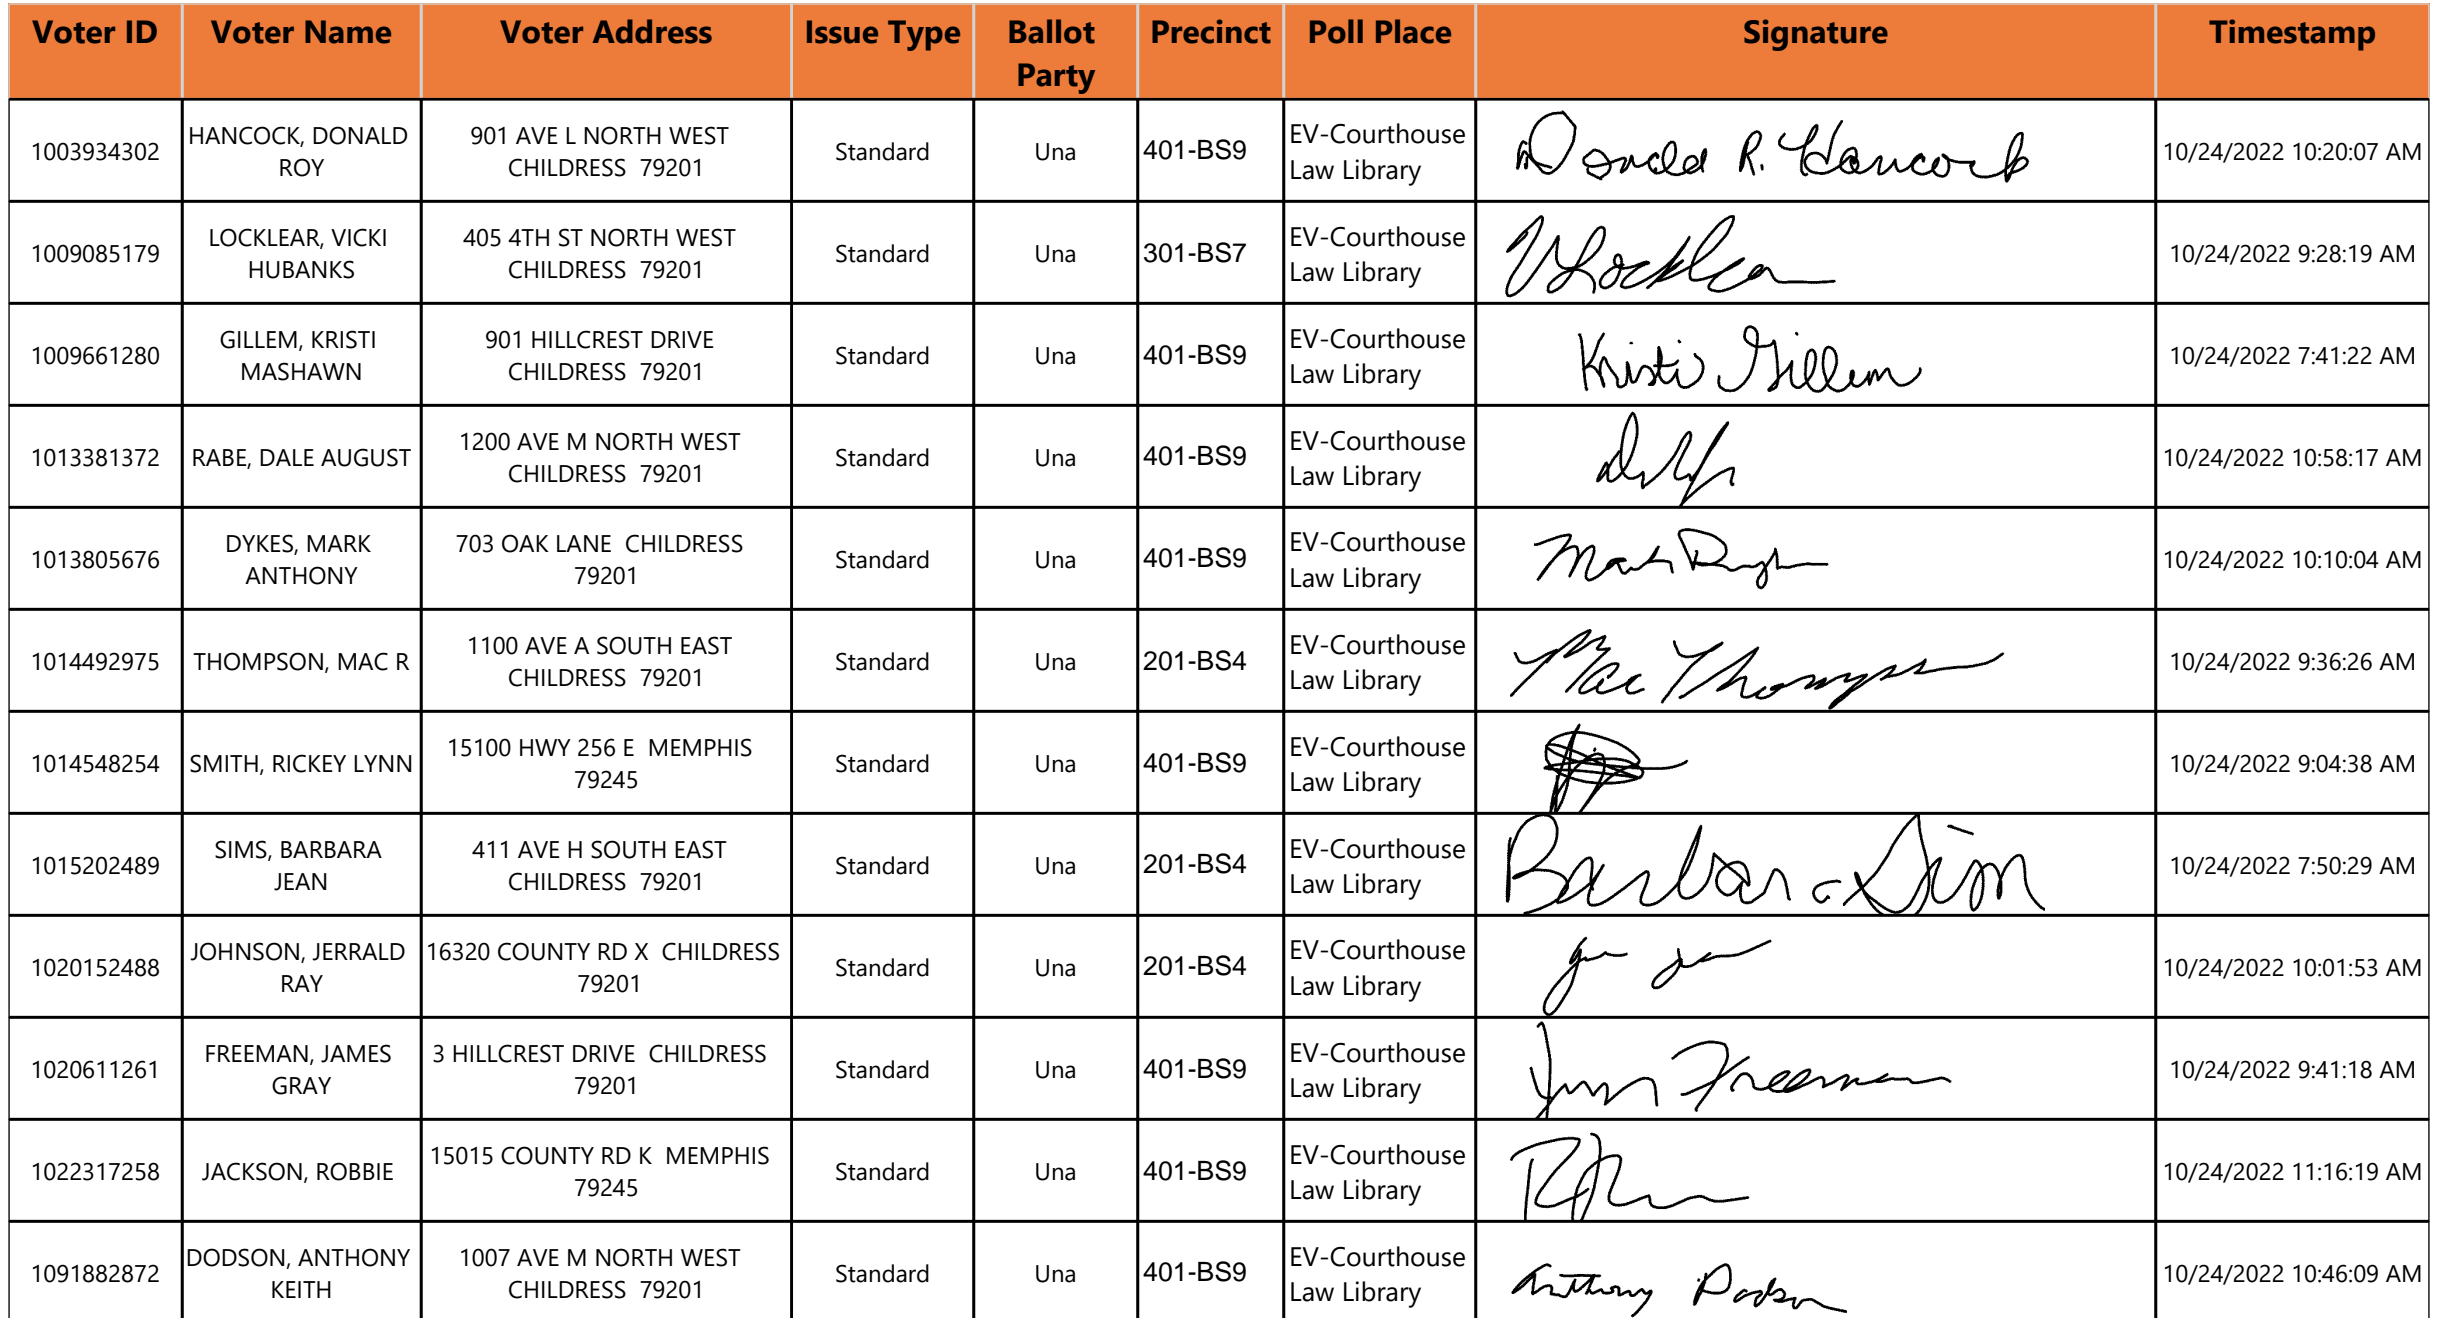 Voter ID Voter Name Voter Address Issue Type Ballot Party Precinct Poll Place Signature Timestamp
1003934302 HANCOCK, DONALD ROY 901 AVE L NORTH WEST CHILDRESS 79201 Standard Una 401-BS9 EV-Courthouse Law Library Donald R. Hancock 10/24/2022 10:20:07 AM
1009085179 LOCKLEAR, VICKI HUBANKS 405 4TH ST NORTH WEST CHILDRESS 79201 Standard Una 301-BS7 EV-Courthouse Law Library V Locklear 10/24/2022 9:28:19 AM
1009661280 GILLEM, KRISTI MASHAWN 901 HILLCREST DRIVE CHILDRESS 79201 Standard Una 401-BS9 EV-Courthouse Law Library Kristi Gillem 10/24/2022 7:41:22 AM
1013381372 RABE, DALE AUGUST 1200 AVE M NORTH WEST CHILDRESS 79201 Standard Una 401-BS9 EV-Courthouse Law Library 10/24/2022 10:58:17 AM
1013805676 DYKES, MARK ANTHONY 703 OAK LANE CHILDRESS 79201 Standard Una 401-BS9 EV-Courthouse Law Library Mark Dykes 10/24/2022 10:10:04 AM
1014492975 THOMPSON, MAC R 1100 AVE A SOUTH EAST CHILDRESS 79201 Standard Una 201-BS4 EV-Courthouse Law Library Mac Thompson 10/24/2022 9:36:26 AM
1014548254 SMITH, RICKEY LYNN 15100 HWY 256 E MEMPHIS 79245 Standard Una 401-BS9 EV-Courthouse Law Library 10/24/2022 9:04:38 AM
1015202489 SIMS, BARBARA JEAN 411 AVE H SOUTH EAST CHILDRESS 79201 Standard Una 201-BS4 EV-Courthouse Law Library Barbara Sim 10/24/2022 7:50:29 AM
1020152488 JOHNSON, JERRALD RAY 16320 COUNTY RD X CHILDRESS 79201 Standard Una 201-BS4 EV-Courthouse Law Library 10/24/2022 10:01:53 AM
1020611261 FREEMAN, JAMES GRAY 3 HILLCREST DRIVE CHILDRESS 79201 Standard Una 401-BS9 EV-Courthouse Law Library Freeman 10/24/2022 9:41:18 AM
1022317258 JACKSON, ROBBIE 15015 COUNTY RD K MEMPHIS 79245 Standard Una 401-BS9 EV-Courthouse Law Library 10/24/2022 11:16:19 AM
1091882872 DODSON, ANTHONY KEITH 1007 AVE M NORTH WEST CHILDRESS 79201 Standard Una 401-BS9 EV-Courthouse Law Library Anthony Dodson 10/24/2022 10:46:09 AM